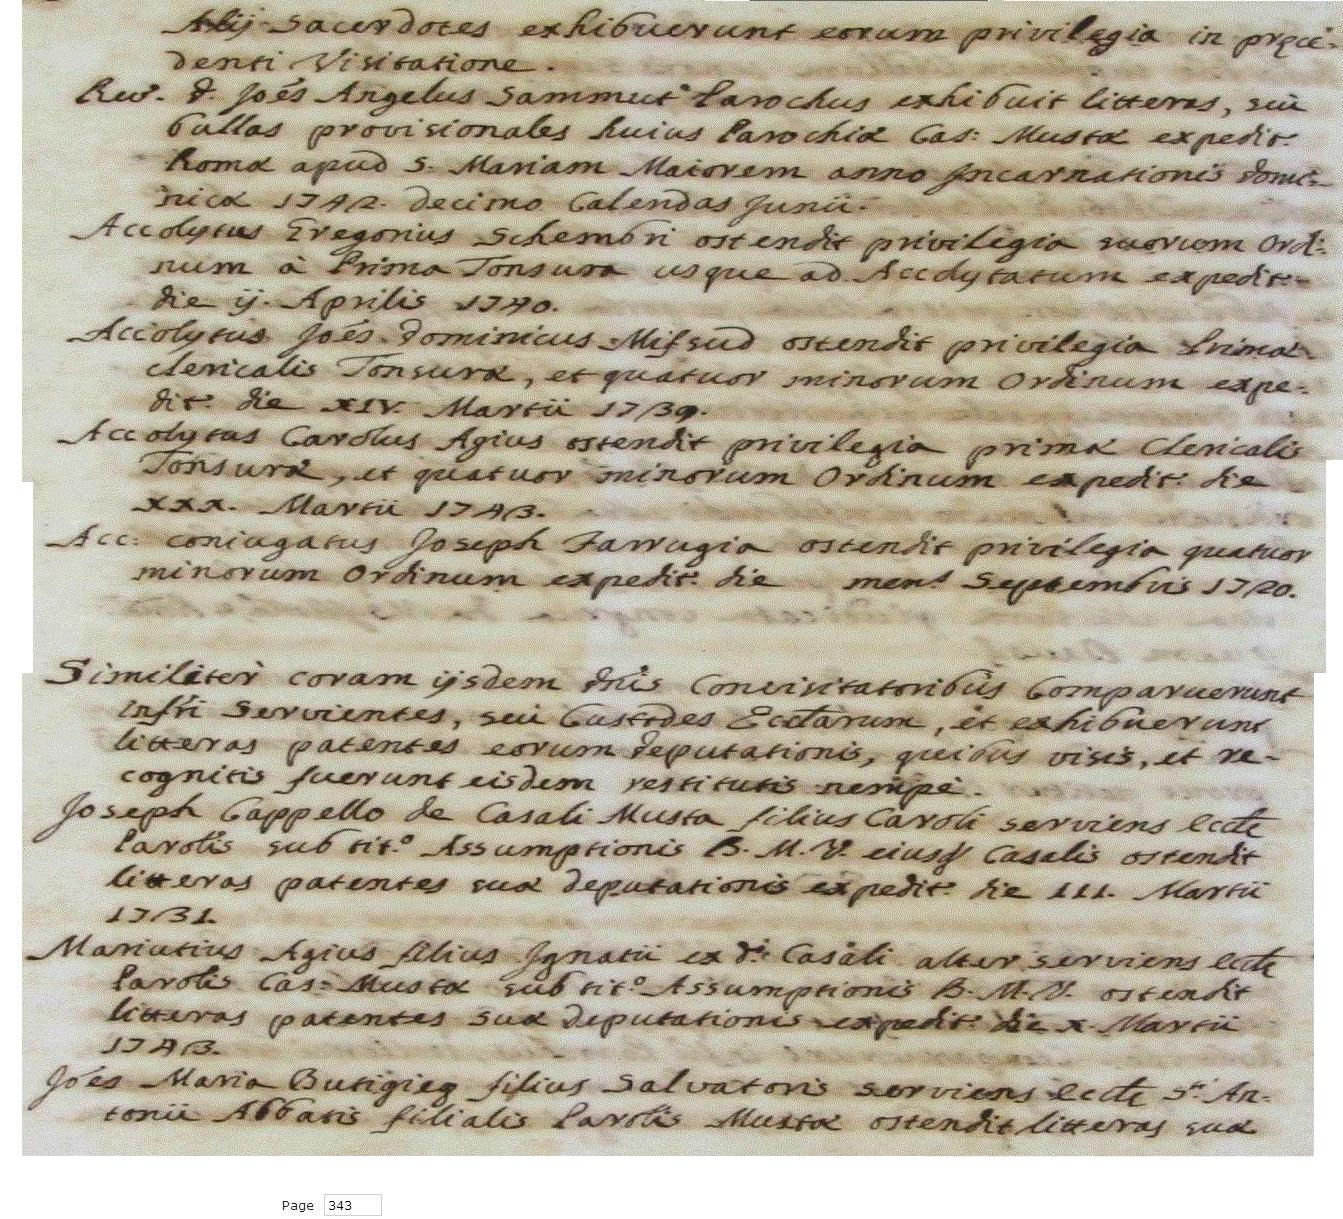 Alij Sacerdotes exhibuerunt eorum privilegia in prece-
denti Visitatione.
Rev. D. Joés Angelus Sammut Parochus exhibuit litteras, seù
bullas provisionales huius Parochiæ Cas: Mustæ expedit:
Romæ apud S. Mariam Maiorem anno Incarnationis Domi-
nicæ 1742. decimo Calendas Junii.
Accolytus Gregorius Schembri ostendit privilegia suorum Ordi-
num à Prima Tonsura usque ad Accolytatum expedit:
die ij. Aprilis 1740.
Accolytus Joés Dominicus Mifsud ostendit privilegia Primæ
clericalis Tonsuræ, et quatuor minorum Ordinum expe-
dit: die XIV. Martii 1739.
Accolytus Carolus Agius ostendit privilegia primæ Clericalis
Tonsuræ, et quatuor minorum Ordinum expedit: die
xxx. Martii 1743.
Acc: coniugatus Joseph Farrugia ostendit privilegia quatuor
minorum Ordinum expedit: die mens Septembris 1720.
Similiter coram ijsdem dnis Convisitatoribus Comparuerunt
infri Servientes, seù Custodes Ecclarum, et exhibuerunt
litteras patentes eorum deputationis, quibus visis, et re-
cognitis fuerunt eisdem restitutis nempè.
Joseph Cappello de Casali Musta filius Caroli serviens Eccle
Parolis sub tit.o Assumptionis B. M. V. eiusq Casalis ostendit
litteras patentes suæ deputationis expedit: die III. Martii
1731.
Mariutius Agius filius Ignatii ex d: Casali alter serviens Eccle
Parolis Cas: Mustæ sub tit.o Assumptionis B. M. V. ostendit
litteras patentes suæ deputationis expedit: die x. Martii
1743.
Joés Maria Butigieg filius Salvatoris serviens Eccle Sti An-
tonii Abbatis filialis Parolis Mustæ ostendit litteras suæ
Page 343